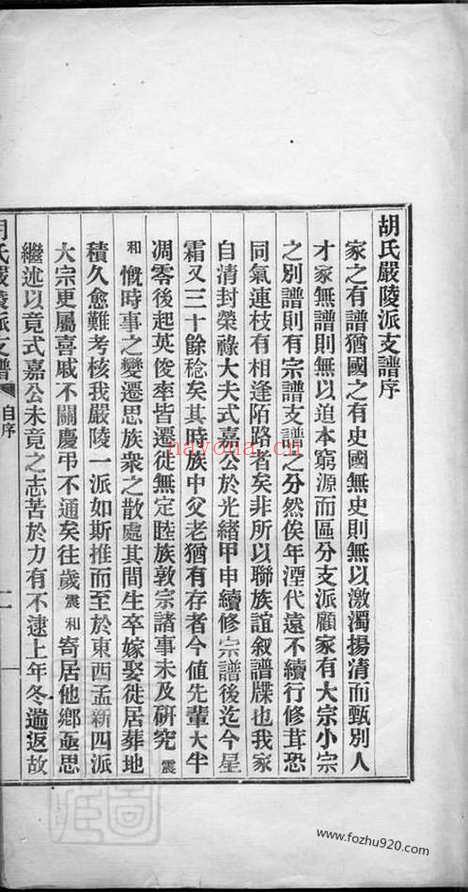 胡氏嚴陵派支譜序
家之有譜猶國之有史國無史則無以激濁揚清而甄別人
才家無譜則無以追本窮源而區分支派顧家有大宗小宗
之別譜則有宗譜支譜之分然俟年湮代遠不續行修茸恐
同氣連枝有相逢陌路者矣非所以聯族誼叙譜牒也我家
自清封榮祿大夫式嘉公於光緒甲申續修宗譜後迄今星
霜又三十餘稔矣其時族中父老猶有存者今值先輩大半
凋零後起英俊率皆遷徙無定睦族敦宗諸事未及研究震
和慨時事之變遷思族衆之散處其間生卒嫁娶徙居葬地
積久愈難考核我嚴陵一派如斯推而至於東西孟新四派
大宗更屬喜戚不關慶弔不通矣往歲震和寄居他鄉亟思
繼述以竟式嘉公未竟之志苦於力有不逮上年冬遄返故
胡氏嚴陵派支譜
自序
一
navona.cn
www.fozhu920.com